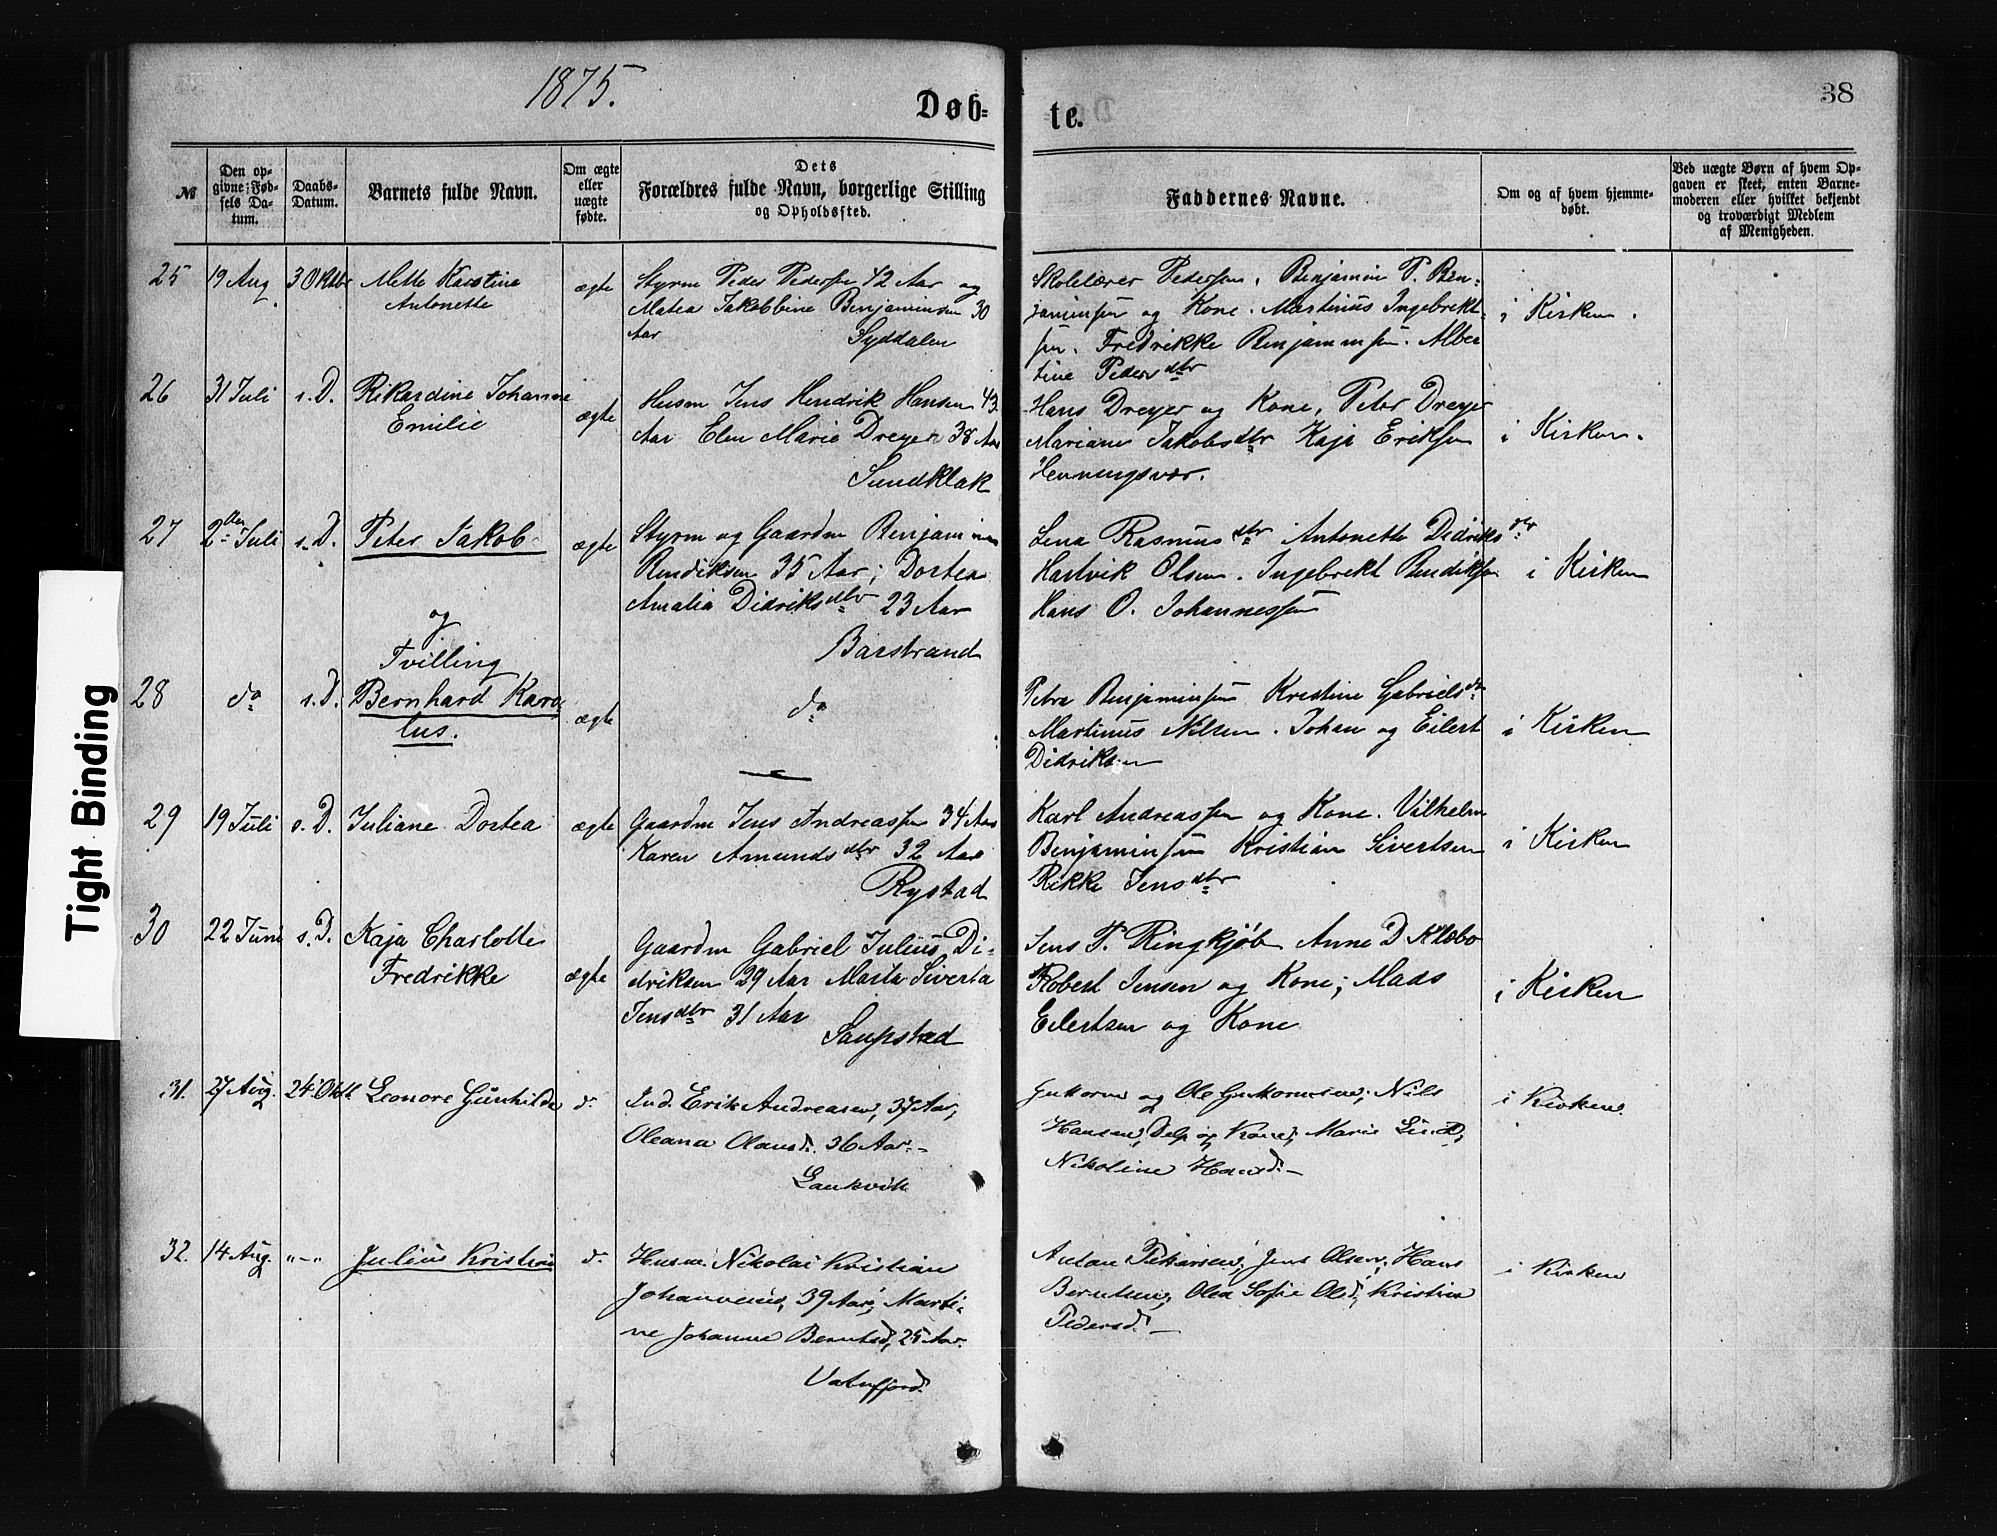 1875.
Døb-
te.
38
№
Den op-
givne Fød-
sels Da-
tum.
Daabs-
Datum.
Barnets fulde Navn.
Om ægte
eller
uægte
fødte.
Dets
Forældres fulde Navn, borgerlige Stilling
og Opholdssted.
Faddernes Navne.
Om og af hvem hjemme-
døbt.
Ved uægte Børn af hvem Op-
gaven er skeet, enten Barne-
moderen eller hvilket bekjendt
og troværdigt Medlem
af Menigheden.
25 19 Aug 3 Oktbr Mette Karstine
Antonette
ægte
Styrm Peder Pedersen 42 Aar og
Matea Jakobbine Benjaminsen 30
Aar
Syddalen
Skolelærer Pedersen. Benjamin P. Ben-
jaminsen og Kone. Martinus Ingebrikt-
sen. Fredrikke Benjaminsen. Alber
tine Pedersdtr
i Kirken.
26 31 Juli s. D. Rikardine Johanne
Emilie
ægte
Husm Jens Hendrik Hansen 43
Aar Elen Marie Dreyer 38 Aar
Sundklak
Hans Dreyer og Kone, Peter Dreyer
Mariane Jakobsdtr Kaja Eriksen
Henningsvær.
i Kirken.
27 2den Juli s. D. Peter Jakob
ægte
Styrm og Gaardm Benjamin
Bendiksen 35 Aar; Dortea
Amalia Didriksdtr 23 Aar
Barstrand
Lena Rasmusdtr Antonette Didriksdtr
Hartvik Olsen. Ingebrikt Bendiksen
Hans O. Johannessen
i Kirken
og
Tvilling
28 do s. D. Bernhard Karo-
lus.
ægte
do
Petra Benjaminsen Kristine Gabrielsdtr
Martinus Nilsen. Johan og Eilert
Didriksen
i Kirken
29 19 Juli s. D. Juliane Dortea ægte
Gaardm Jens Andreassen 34 Aar
Karen Amundsdtr 32 Aar
Rystad
Karl Andreassen og Kone. Vilhelm
Benjaminsen Kristian Sivertsen
Rikke Jensdtr
i Kirken
30 22 Juni s. D. Kaja Charlotte
Fredrikke
ægte
Gaardm Gabriel Julius Di-
driksen 29 Aar Marta Siverta
Jensdtr 31 Aar
Saupstad
Jens T. Ringkjøb Anne D Klæbo
Robert Jensen og Kone; Mads
Eilertsen og Kone
i Kirken
31. 27 Aug. 24. Oktb. Leonore Gunhilde d.
Ind. Erik Andreasen, 37 Aar,
Oleana Olausd. 36 Aar.-
Laukvik
Guttorm og Ole Guttormsen; Nils
Hansen, Delp og Kone; Marie Lind;
Nikoline Hansd. –
i Kirken
32. 14 Aug. „–„ Julius Kristian d.
Husm. Nikolai Kristian
Johannesen, 39 Aar; Marti-
ne Johanne Berntsd, 25 Aar.
Vatnfjord.
Anton Pedersen; Jens Olsen; Hans
Berntsen; Olea Sofie Olsd; Kristine
Pedersd. –
i Kirken
Tight Binding